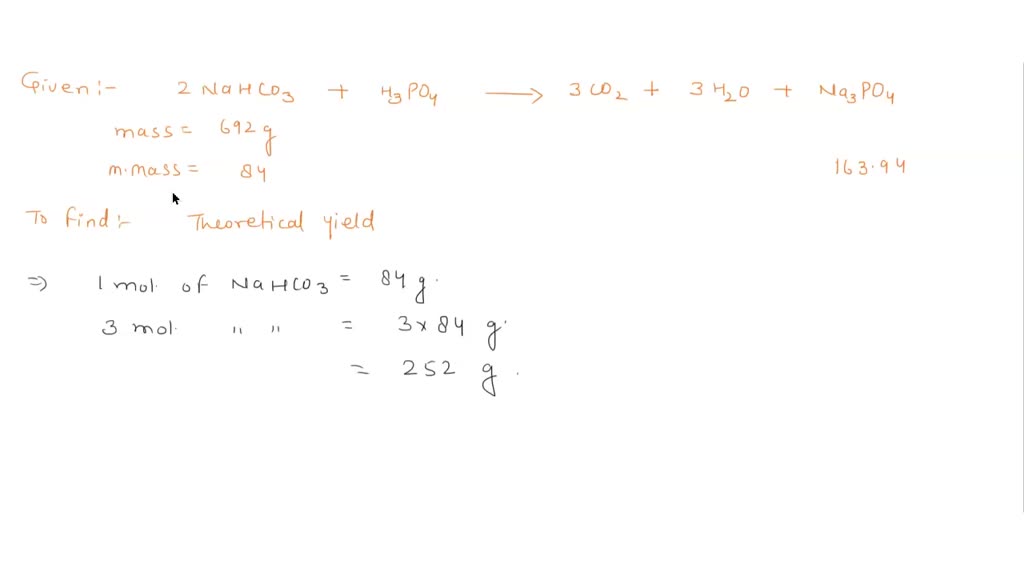 Given:- 2 NaHCO3 + H3PO4 → 3 CO2 + 3 H2O + Na3PO4
mass = 692 g
m.mass = 84 163.94
To find:- Theoretical yield
⇒ 1 mol. of NaHCO3 = 84 g.
3 mol. " " = 3 x 84 g.
= 252 g.